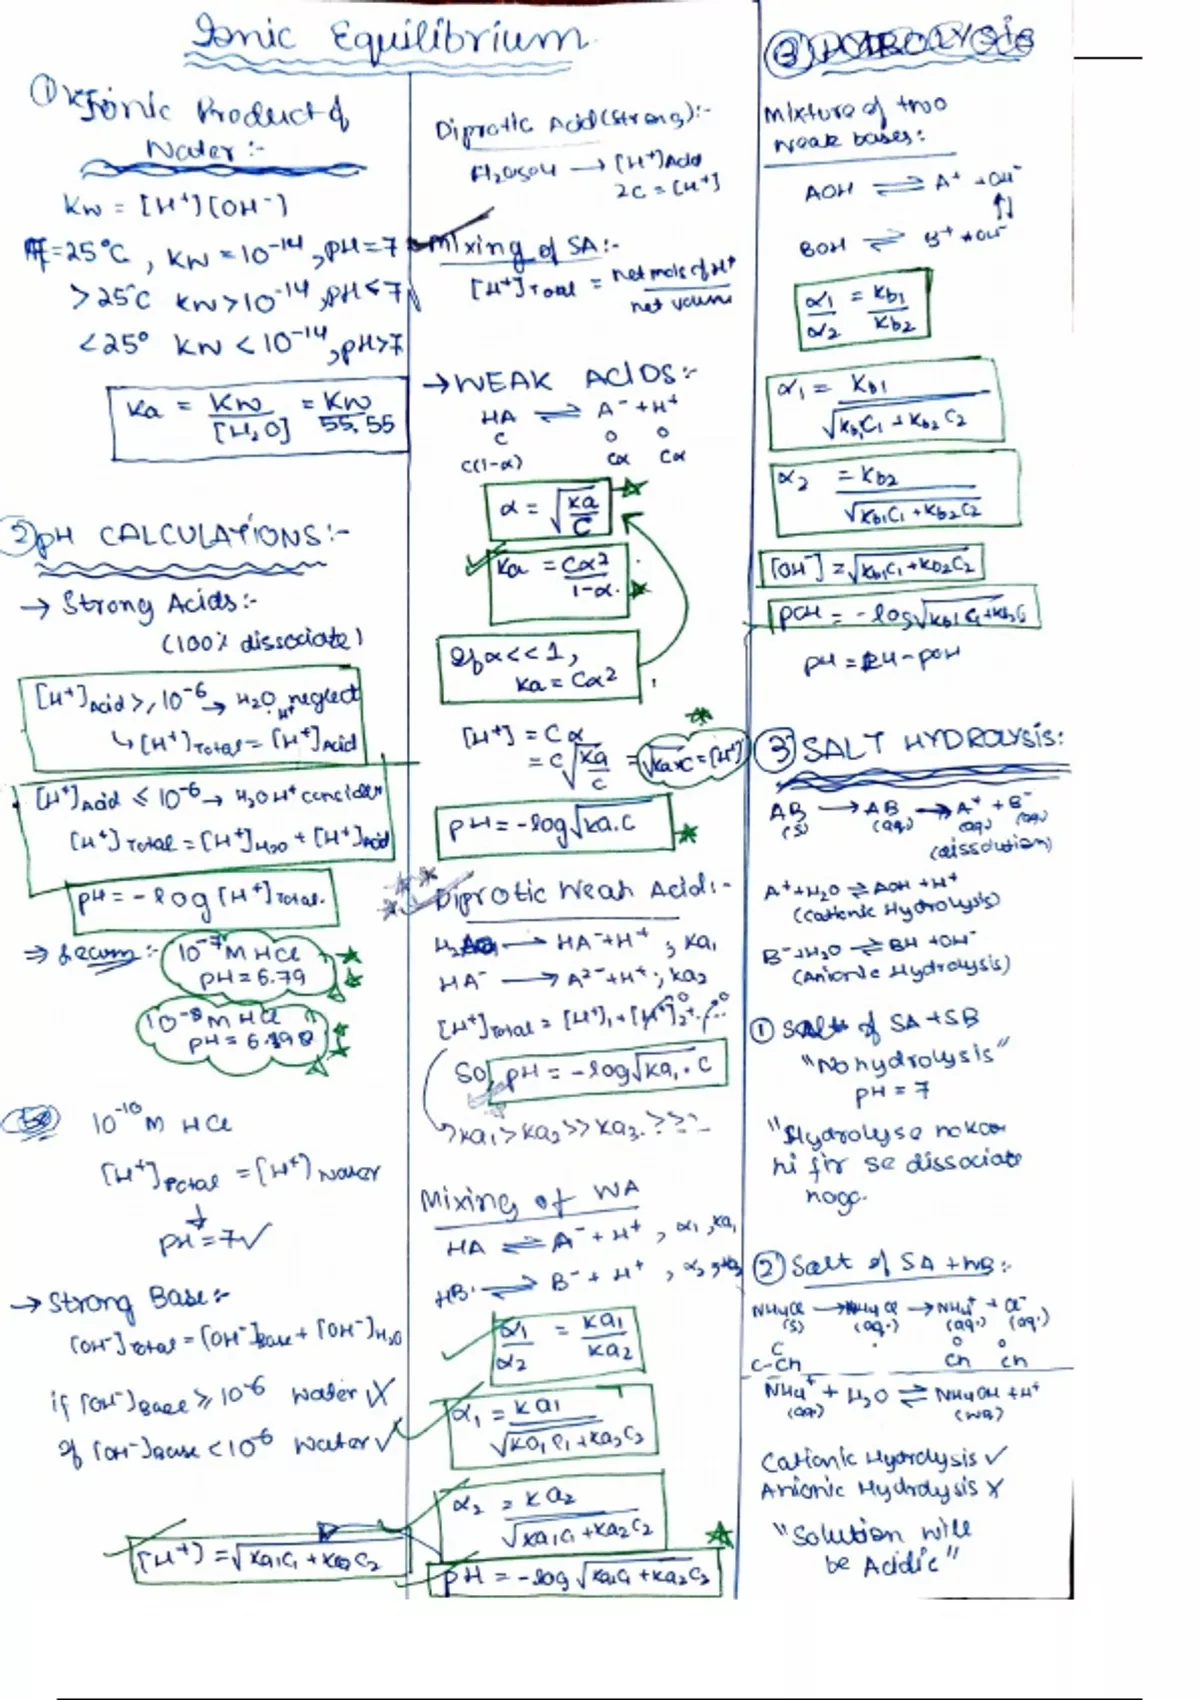 Ionic Equilibrium
① Ionic Product of
Water :-
Kw = [H⁺][OH⁻]
=25°C, Kw = 10⁻¹⁴, pH=7
>25°C Kw>10⁻¹⁴, pH<7
<25° Kw < 10⁻¹⁴, pH>7
Ka = Kw/[H₂O] = Kw/55.55
② pH CALCULATIONS:-
→ Strong Acids:-
(100% dissociate)
[H⁺]Acid >, 10⁻⁶ → H₂O H⁺ neglect
↳ [H⁺]Total = [H⁺]Acid
[H⁺]Acid ≤ 10⁻⁶ → H₂O H⁺ consider
[H⁺]Total = [H⁺]H₂O + [H⁺]Acid
pH = -log [H⁺]Total.
⇒ Learn:- 10⁻⁷ M HCl
pH = 6.79
10⁻⁸ M HCl
10⁻¹⁰ M HCl
[H⁺]Total = [H⁺] Water
↓
pH = 7✓
→ Strong Base:-
[OH⁻]Total = [OH⁻]Base + [OH⁻]H₂O
if [OH⁻]Base ≥ 10⁻⁶ Water X
If [OH⁻]Base < 10⁻⁶ Water ✓
[H⁺] = √Ka₁C₁ + Ka₂C₂
Diprotic Acid (Strong):-
→ [H⁺]Acid
2C = [H⁺]
Mixing of SA:-
[H⁺]Total = net mols of H⁺/net volume
→ WEAK ACIDS:-
HA ⇌ A⁻ + H⁺
C 0 0
C(1-α) Cα Cα
α = √Ka/C
Ka = Cα²/1-α.
If α<<1,
Ka = Cα²
[H⁺] = Cα
= C√Ka/C = √Ka×C = [H⁺]
pH = -log√Ka.C
Diprotic Weak Acid:-
→ HA⁻+H⁺ ; Ka₁
HA⁻ → A²⁻+H⁺ ; Ka₂
[H⁺]Total = [H⁺]₁ + [H⁺]₂ + ...
So, pH = -log√Ka₁.C
Ka₁>Ka₂>>Ka₃.>>:-
Mixing of WA
HA ⇌ A⁻ + H⁺ , α₁, Ka₁
HB ⇌ B⁻ + H⁺ , α₂, Ka₂
α₁/α₂ = Ka₁/Ka₂
α₁ = Ka₁/√Ka₁C₁+Ka₂C₂
α₂ = Ka₂/√Ka₁C₁+Ka₂C₂
pH = -log √Ka₁C₁+Ka₂C₂
Mixture of two
weak bases:
AOH ⇌ A⁺ + OH⁻
⇅
BOH ⇌ B⁺ + OH⁻
α₁/α₂ = Kb₁/Kb₂
α₁ = Kb₁/√Kb₁C₁+Kb₂C₂
α₂ = Kb₂/√Kb₁C₁+Kb₂C₂
[OH⁻] = √Kb₁C₁+Kb₂C₂
pOH = -log√Kb₁C₁+Kb₂C₂
③ SALT HYDROLYSIS:
AB(s) → AB(aq.) → A⁺(aq.) + B⁻(aq.)
(dissolution)
A⁺+H₂O ⇌ AOH + H⁺
(Cationic Hydrolysis)
B⁻+H₂O ⇌ BH + OH⁻
(Anionic Hydrolysis)
① Salt of SA+SB
"No hydrolysis"
pH = 7
hi fir se dissociate
hoga.
② Salt of SA + WB:-
NH₄Cl(s) → NH₄Cl(aq.) → NH₄⁺(aq.) + Cl⁻(aq.)
C 0 0
C-Ch Ch Ch
NH₄⁺(aq) + H₂O ⇌ NH₄OH(WB) + H⁺
Cationic Hydrolysis ✓
Anionic Hydrolysis X
"Solution will
be Acidic"